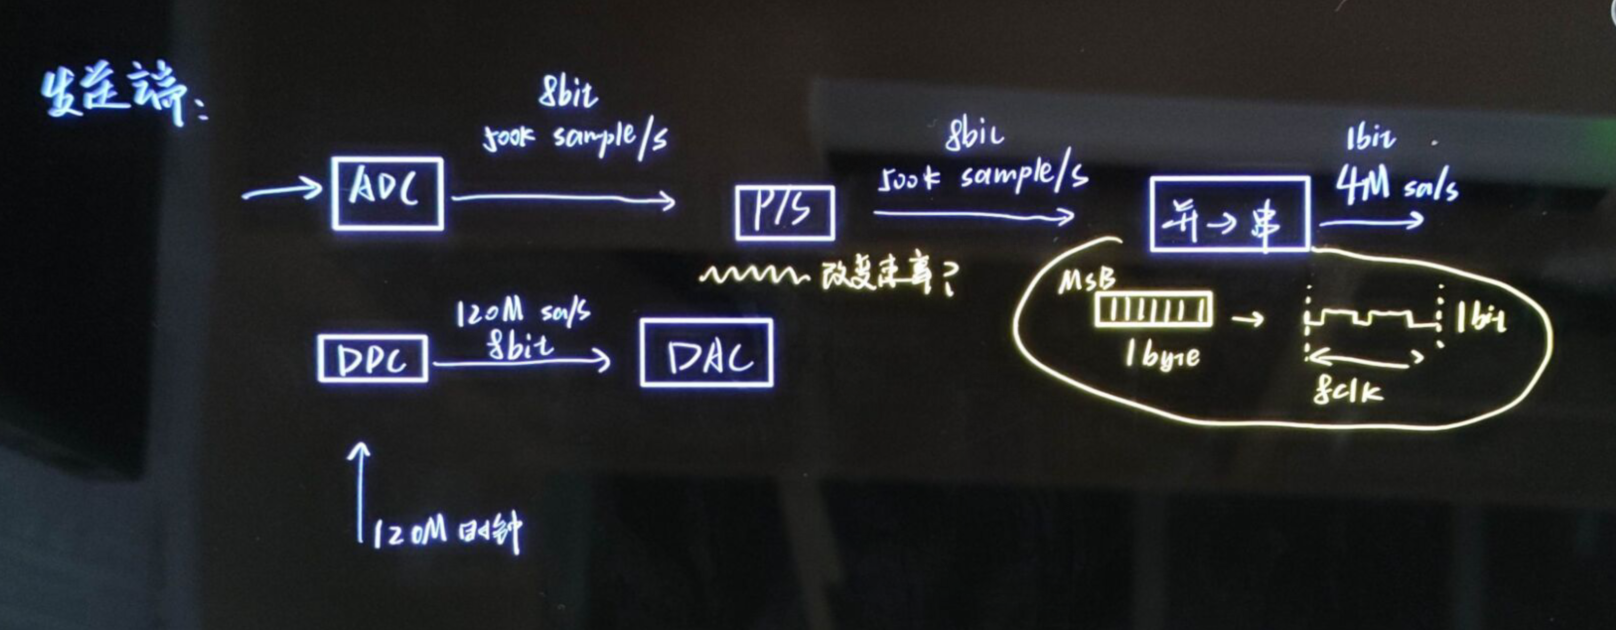 发送端:
8bit
500k sample/s
ADC
P/S
改变速率?
8bit
500k sample/s
并→串
1bit
4M sa/s
MSB
1byte
1bit
8clk
DPC
120M sa/s
8bit
DAC
120M 时钟